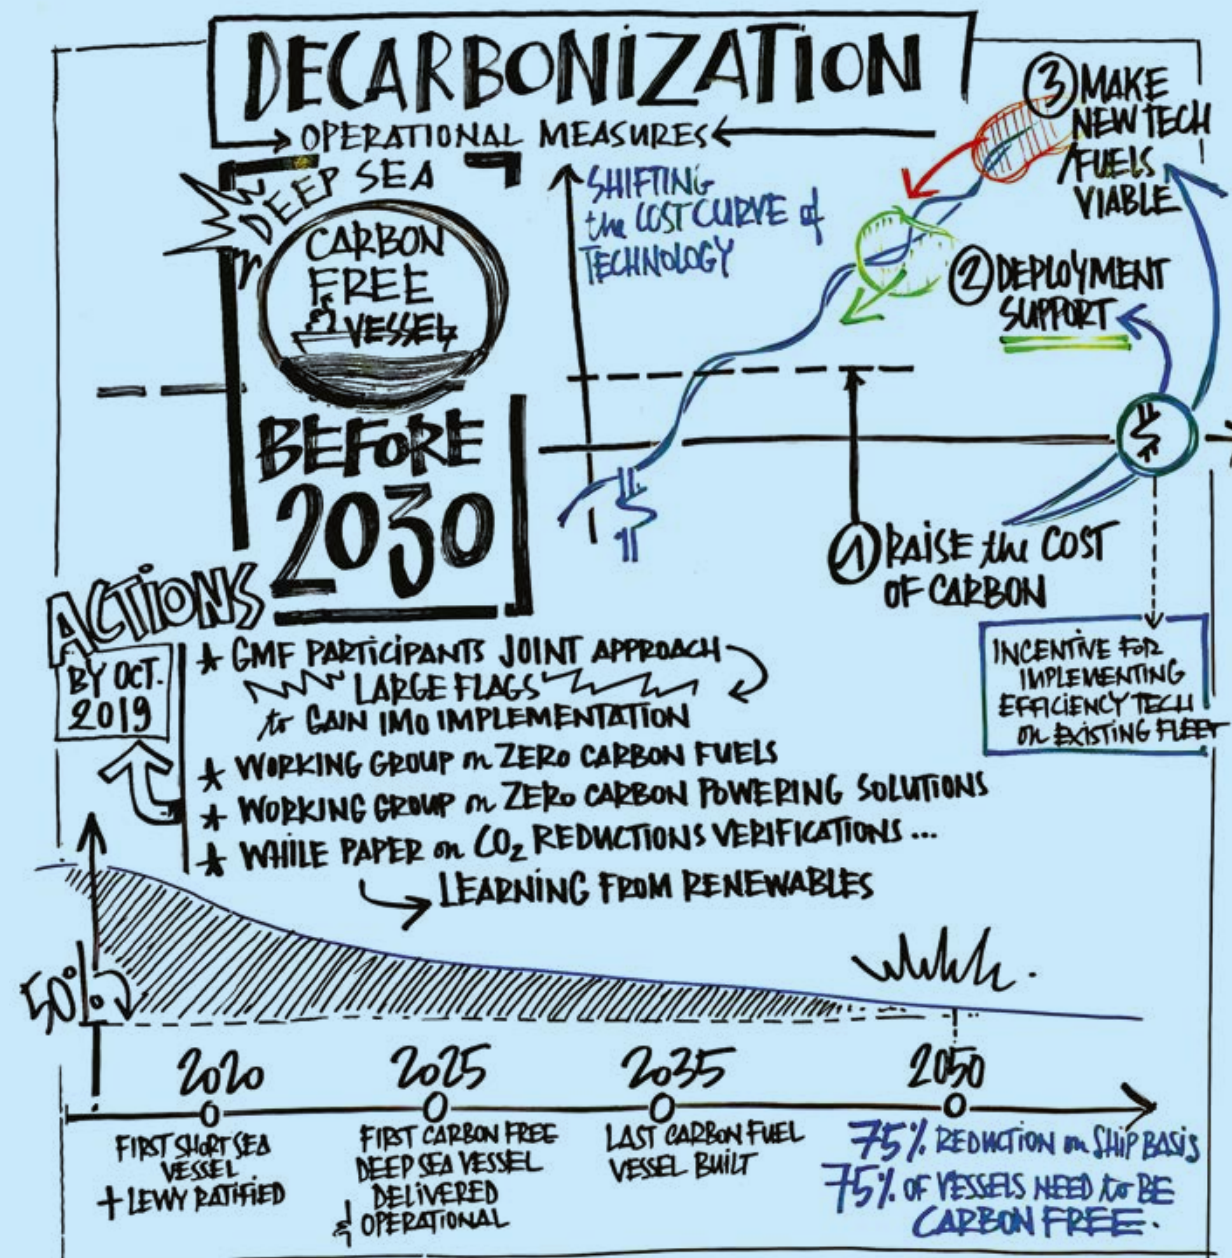 DECARBONIZATION
OPERATIONAL MEASURES
DEEP SEA
CARBON
FREE
VESSEL
BEFORE
2030
SHIFTING
the COST CURVE of
TECHNOLOGY
3 MAKE
NEW TECH
/FUELS
VIABLE
2 DEPLOYMENT
SUPPORT
1 RAISE the COST
OF CARBON
INCENTIVE FOR
IMPLEMENTING
EFFICIENCY TECH
on EXISTING FLEET
ACTIONS
BY OCT.
2019
★ GMF PARTICIPANTS JOINT APPROACH
LARGE FLAGS
to GAIN IMO IMPLEMENTATION
★ WORKING GROUP on ZERO CARBON FUELS
★ WORKING GROUP on ZERO CARBON POWERING SOLUTIONS
★ WHILE PAPER on CO₂ REDUCTIONS VERIFICATIONS...
LEARNING FROM RENEWABLES
2020
FIRST SHORT SEA
VESSEL
+ LEWY RATIFIED
2025
FIRST CARBON FREE
DEEP SEA VESSEL
DELIVERED
& OPERATIONAL
2035
LAST CARBON FUEL
VESSEL BUILT
2050
75% REDUCTION on SHIP BASIS
75% OF VESSELS NEED to BE
CARBON FREE.